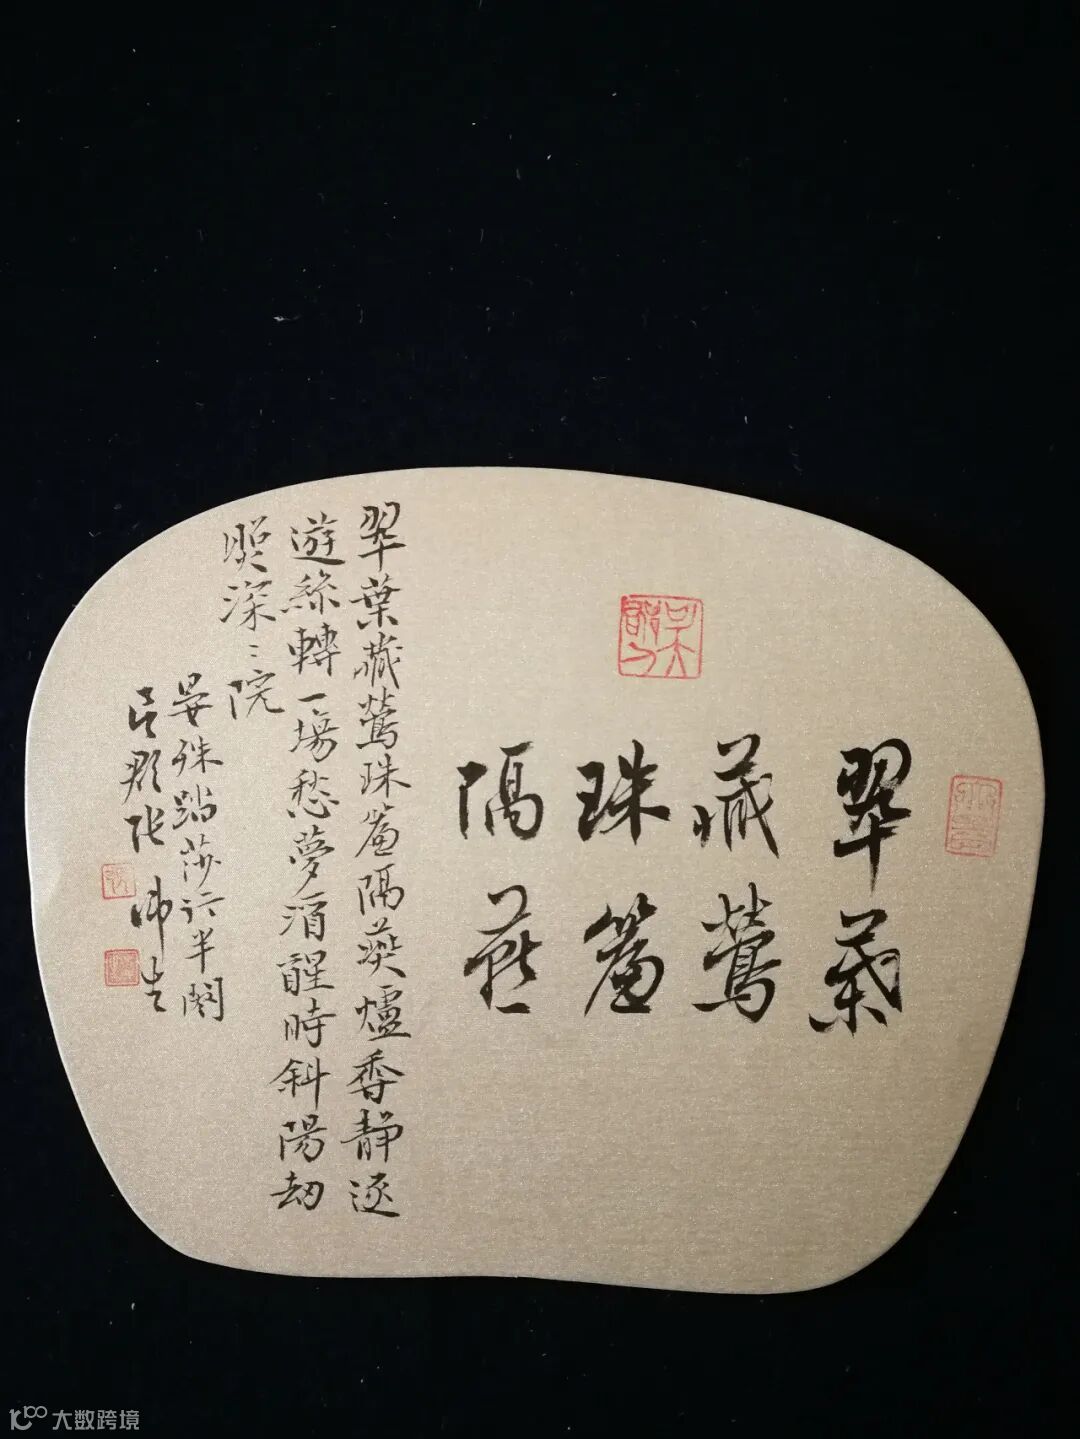 翠葉
藏鶯
珠簾
隔燕
翠葉藏鶯珠簾隔燕爐香靜逐
遊絲轉一場愁夢酒醒時斜陽却
照深〻院
晏殊踏莎行半闋
吳郡張
大数跨境